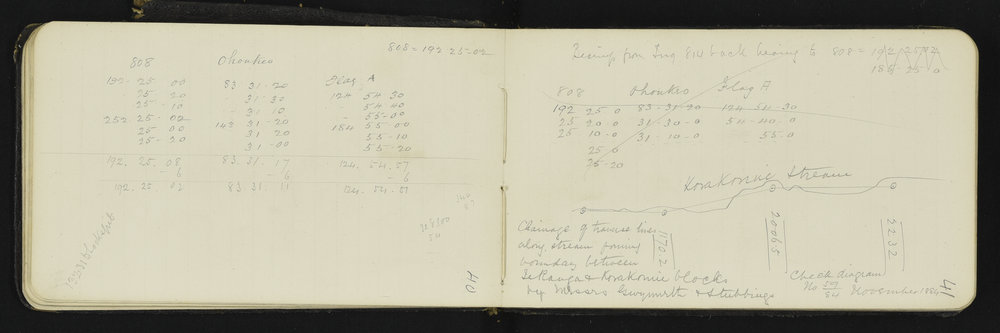 808 = 192 25-02
808 Ohoukeo Flag A
192-25 00 83 31-20 124 54 30
25-20 31-30 54-40
25-10 31 10 55-00
252.25-02 143 31-20 184 55 00
25 00 31 20 55-10
25-20 31-00 55 20
192.25.08 83.31.17 124.54.57
-6 -6 -6
192.25.02 83 31 11 124.54.51
40
Bearing from Trig 814 back bearing to 808 = 192 25 02
186-25-0
808 Ohoukeo Flag A
192 25 0 83-31-20 124-54-30
25 20 0 31-30-0 54-40-0
25 10-0 31-10-0 55-0
25 0
25-20
Korakonui Stream
1170.2
2006.5
2232
Chainage of traverse lines
along stream forming
boundary between
Te Ranga & Korakonui blocks
by Messrs Gwynneth & Stubbings
Check diagram
No 59/84 November 1884
41